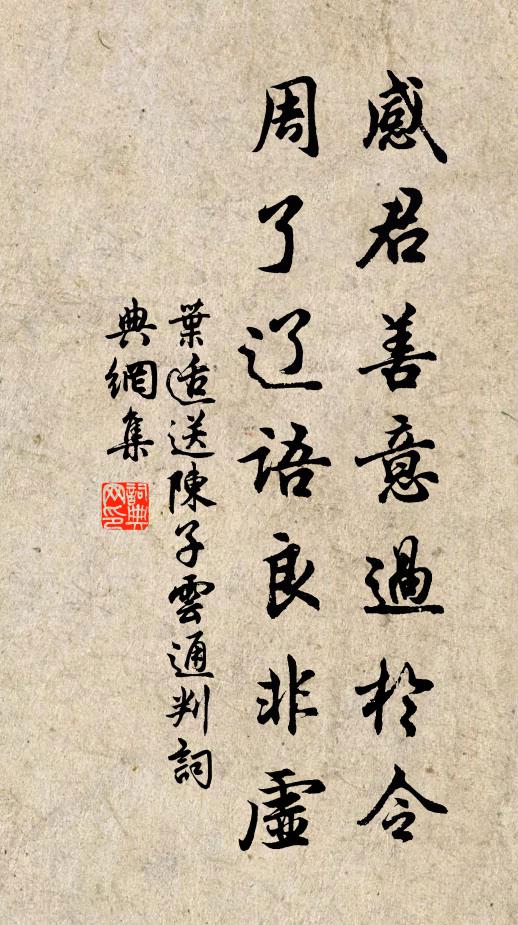 感君善意過於合
周了辽語良非虛
葉适送陳子雲通判詞
典網集
詞典
网印